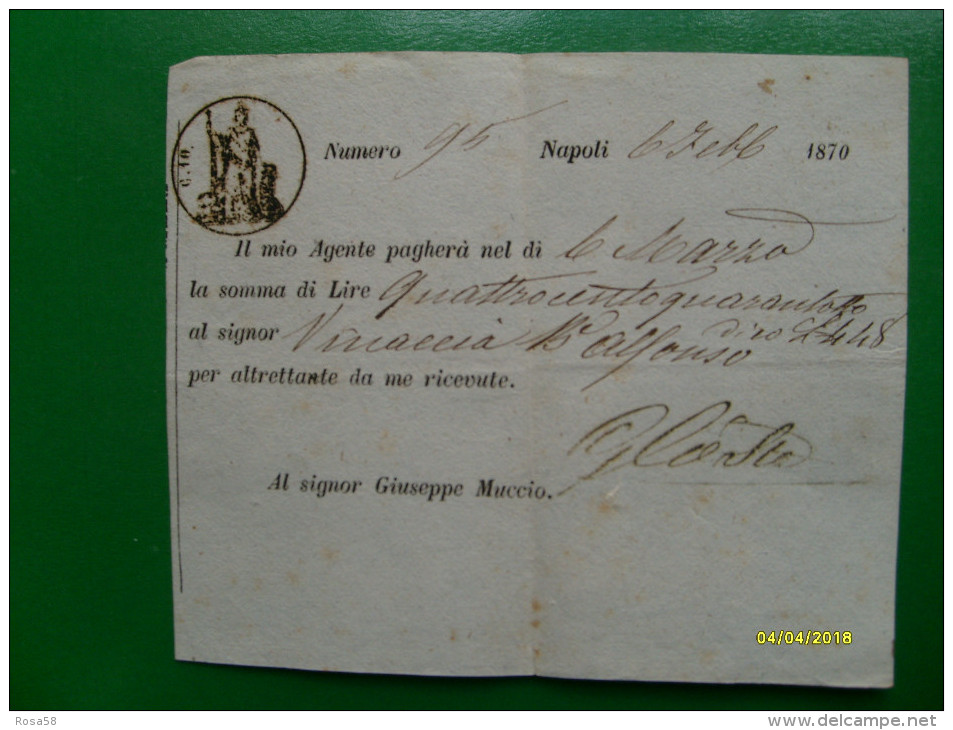 C. 10.
Numero 95 Napoli 6 Febb 1870
Il mio Agente pagherà nel dì 6 Marzo
la somma di Lire Quattrocentoquarantotto
dico L 448
al signor Vinaccia Alfonso
per altrettante da me ricevute.
Al signor Giuseppe Muccio.
04/04/2018
Rosa58
www.delcampe.net